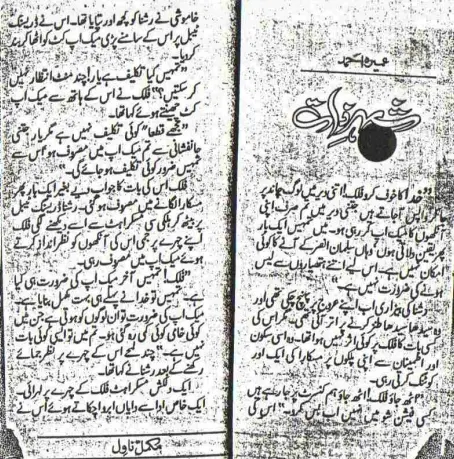 عمیرہ احمد
شہر ذات
"خدا کا خوف کرو فلک! اتنی دیر میں لوگ چاند پر
جا کر واپس آ جاتے ہیں جتنی دیر میں تم صرف اپنی
آنکھوں کا میک اپ کر رہی ہو۔ میں تمہیں ایک بار پھر
یقین دلاتی ہوں کہ وہاں سلمان انصر کے آنے کا کوئی
امکان نہیں ہے۔ اس لیے اتنے ہتھیاروں سے لیس
ہونے کی ضرورت نہیں ہے۔"
رشنا کی بیزاری اب اپنے عروج پر پہنچ چکی تھی اور
وہ سیدھا سیدھا طنز کرنے پر اتر آئی تھی۔ مگر اس کی
کسی بات کا فلک پر کوئی اثر نہیں ہوا تھا۔ وہ اسی سکون
اور اطمینان سے اپنی پلکوں پر مسکارا کی ایک اور
کوٹنگ کرتی رہی۔
"اٹھ جاؤ فلک! اٹھ جاؤ ہم کنسرٹ پر جا رہے ہیں
کسی فیشن شو میں نہیں اب بس کرو۔" اس کی
خاموشی نے رشنا کو کچھ اور تپایا تھا۔ اس نے ڈریسنگ
ٹیبل پر اس کے سامنے پڑی میک اپ کٹ کو اٹھا کر بند
کر دیا۔
"تمہیں کیا تکلیف ہے یار! چند منٹ انتظار نہیں
کر سکتیں؟" فلک نے اس کے ہاتھ سے میک اپ
کٹ چھینتے ہوئے کہا تھا۔
"مجھے قطعاً کوئی تکلیف نہیں ہے مگر یار جتنی
جانفشانی سے تم میک اپ میں مصروف ہو اس سے
تمہیں ضرور کوئی تکلیف ہو جائے گی۔"
فلک اس کی بات کا جواب دیے بغیر ایک بار پھر
مسکارا لگانے میں مصروف ہو گئی۔ رشنا ڈریسنگ ٹیبل
پر بیٹھ کر ہلکی سی مسکراہٹ سے اسے دیکھنے لگی فلک
اپنے چہرے پر جمی اس کی آنکھوں کو نظر انداز کرتے
ہوئے میک اپ میں مصروف رہی۔
"فلک! تمہیں آخر میک اپ کی ضرورت ہی کیا
ہے۔ تمہیں تو خدا نے پہلے ہی بہت مکمل بنایا ہے۔
میک اپ کی ضرورت تو ان لوگوں کو ہوتی ہے جن میں
کوئی خامی کوئی کمی رہ گئی ہو۔ تم میں تو ایسی کوئی بات
نہیں ہے۔" چند لمحے اس کے چہرے پر نظر جمائے
رکھنے کے بعد رشنا نے کہا تھا۔
ایک دلکش مسکراہٹ فلک کے چہرے پر لہرائی۔
ایک خاص ادا سے دایاں ابرو اچکاتے ہوئے اس نے
مکمل ناول